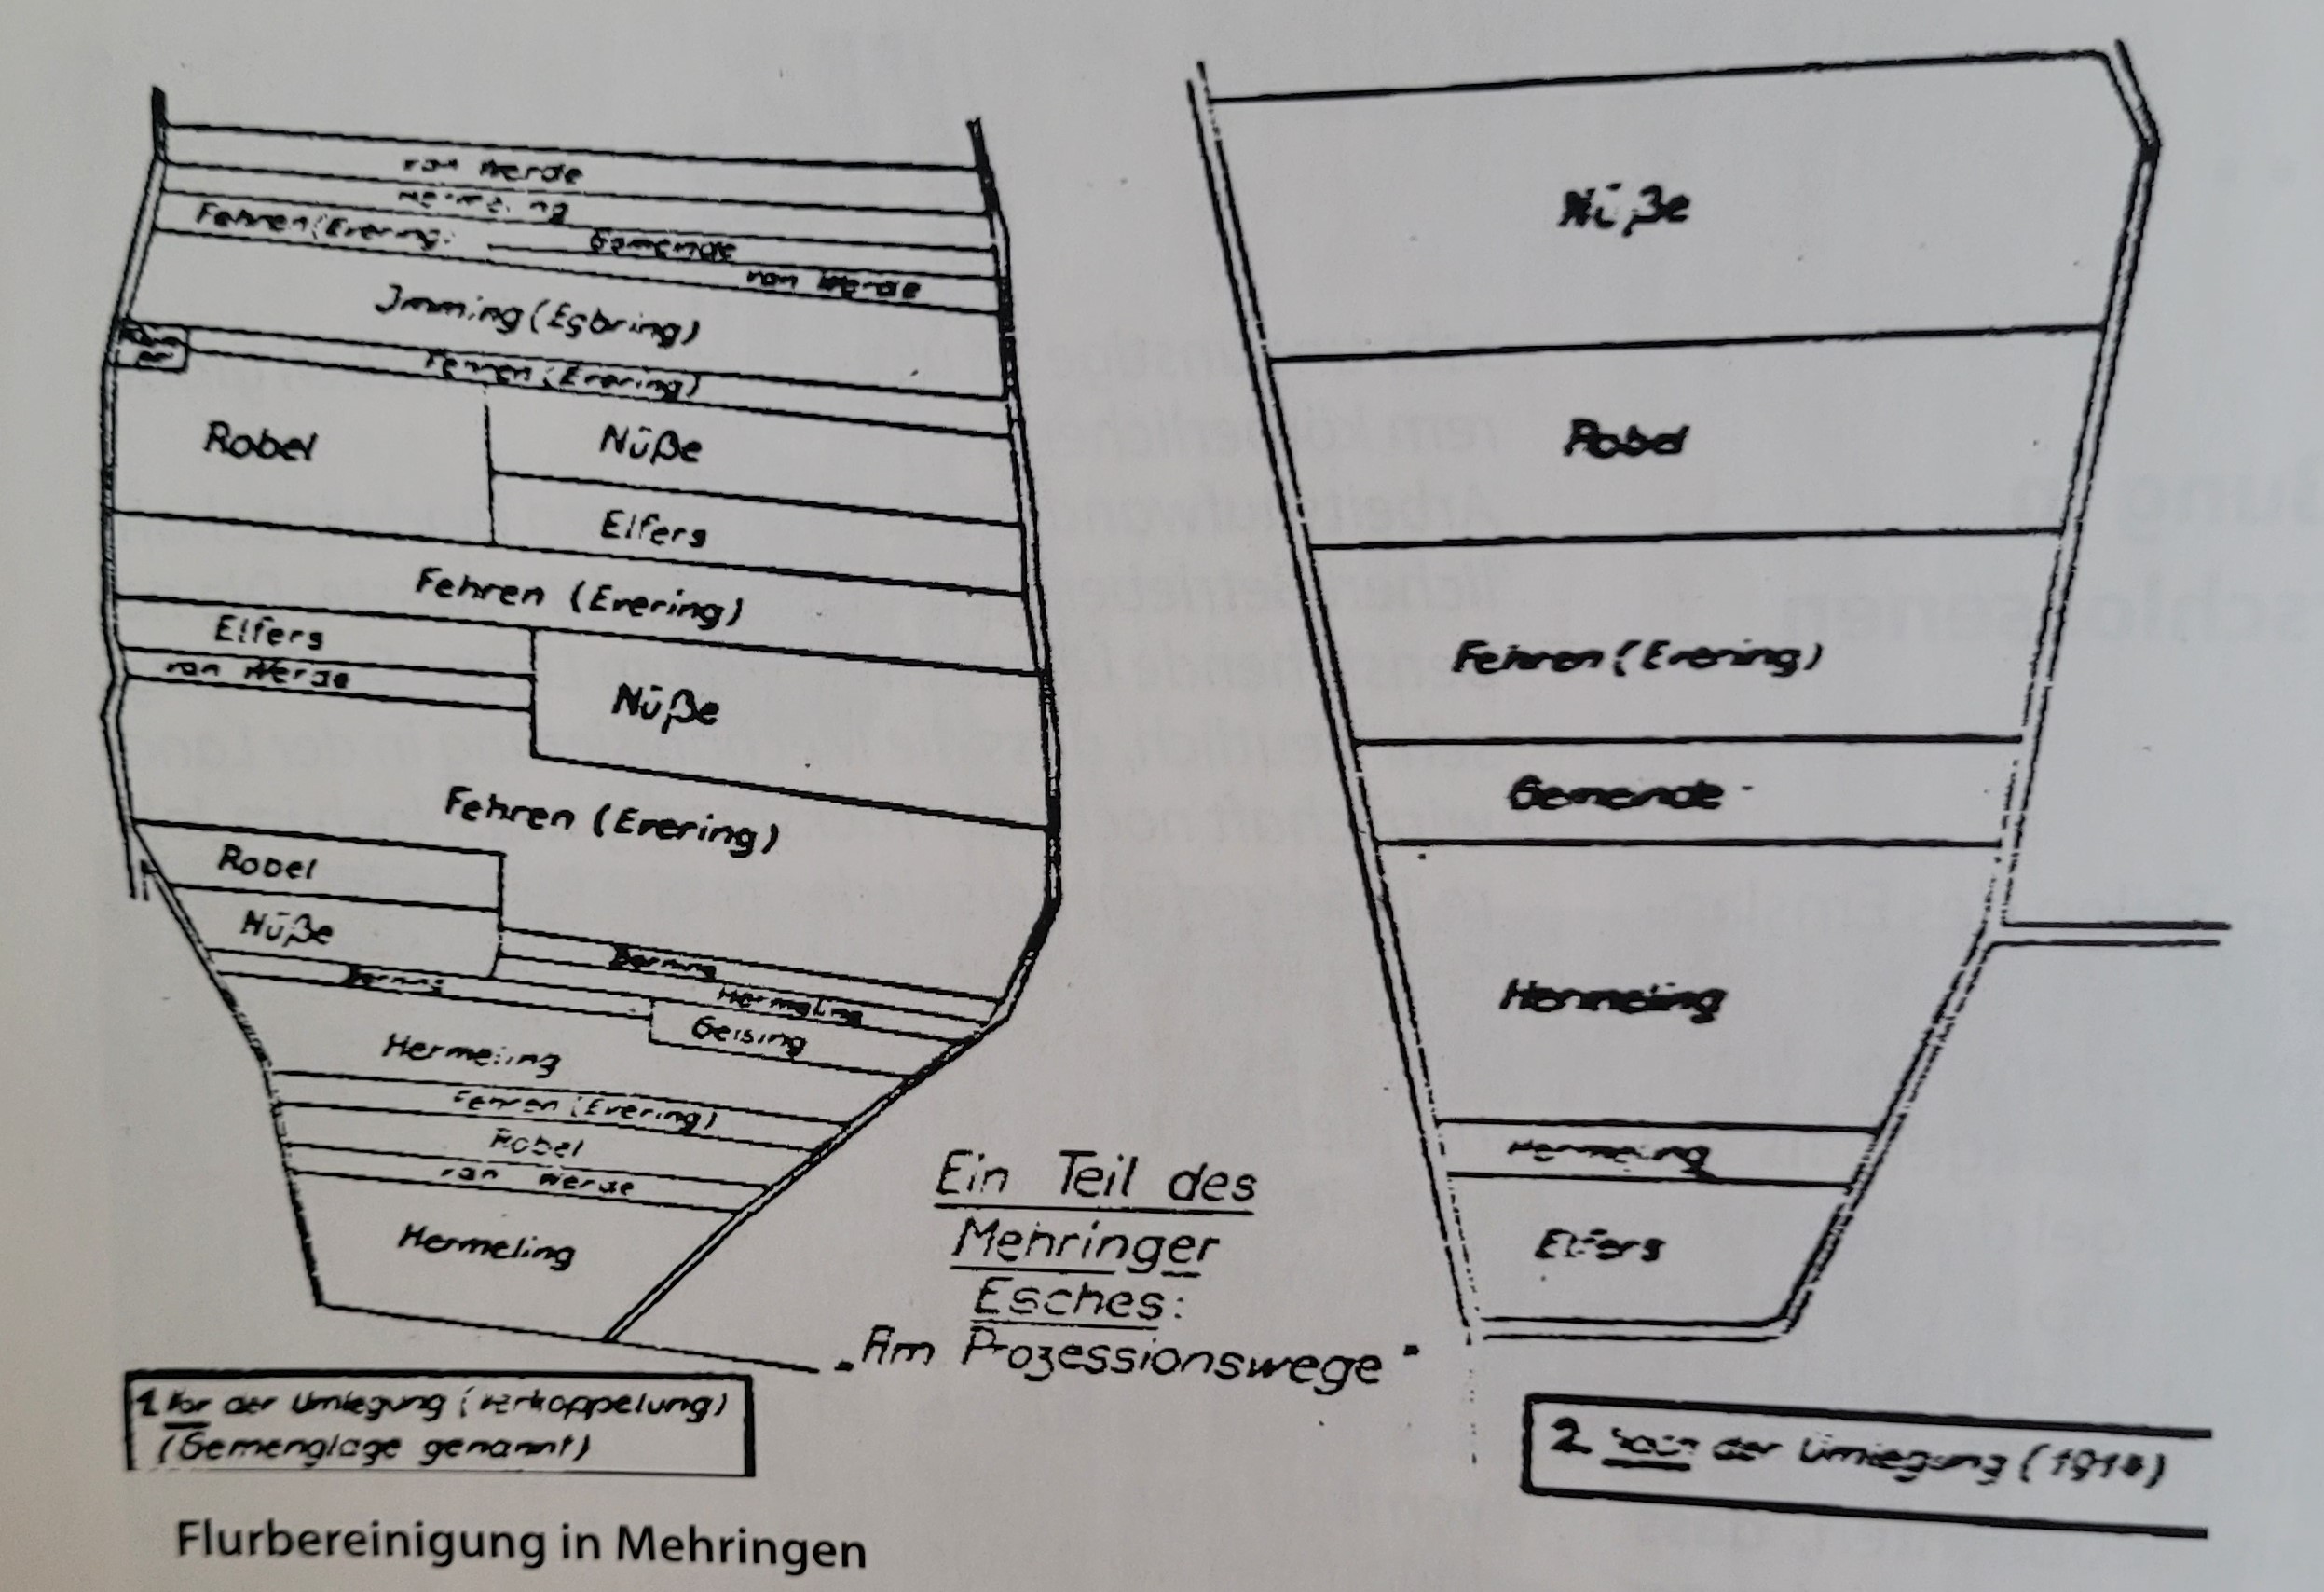 van Werde
Hermeling
Fehren (Evering)
Gemeinde
van Werde
Imming (Egbring)
Fehren (Evering)
Robel
Nüße
Elfers
Fehren (Evering)
Elfers
van Werde
Nüße
Fehren (Evering)
Robel
Nüße
Berning
Hermeling
Berning
Geising
Hermeling
Fehren (Evering)
Robel
van Werde
Hermeling
1. Vor der Umlegung (Verkoppelung)
(Gemenglage genannt)
Ein Teil des
Mehringer
Esches:
„Am Prozessionswege"
Nüße
Robel
Fehren (Evering)
Gemeinde
Hermeling
Hermeling
Elfers
2. Nach der Umlegung (1914)
Flurbereinigung in Mehringen